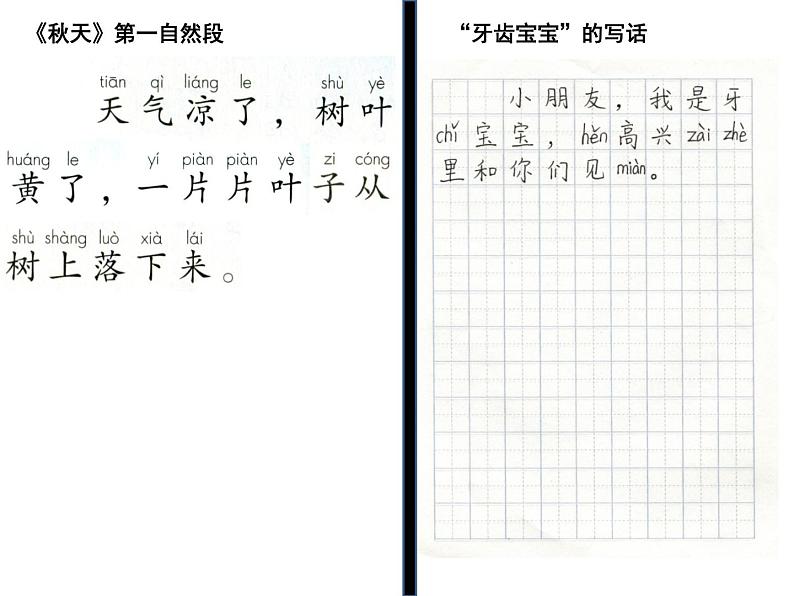 《秋天》第一自然段
tiān qì liáng le shù yè
天气凉了，树叶
huáng le yí piàn piàn yè zi cóng
黄了，一片片叶子从
shù shàng luò xià lái
树上落下来。
“牙齿宝宝”的写话
小朋友，我是牙
chǐ宝宝，hěn高兴zài zhè
里和你们见miàn。